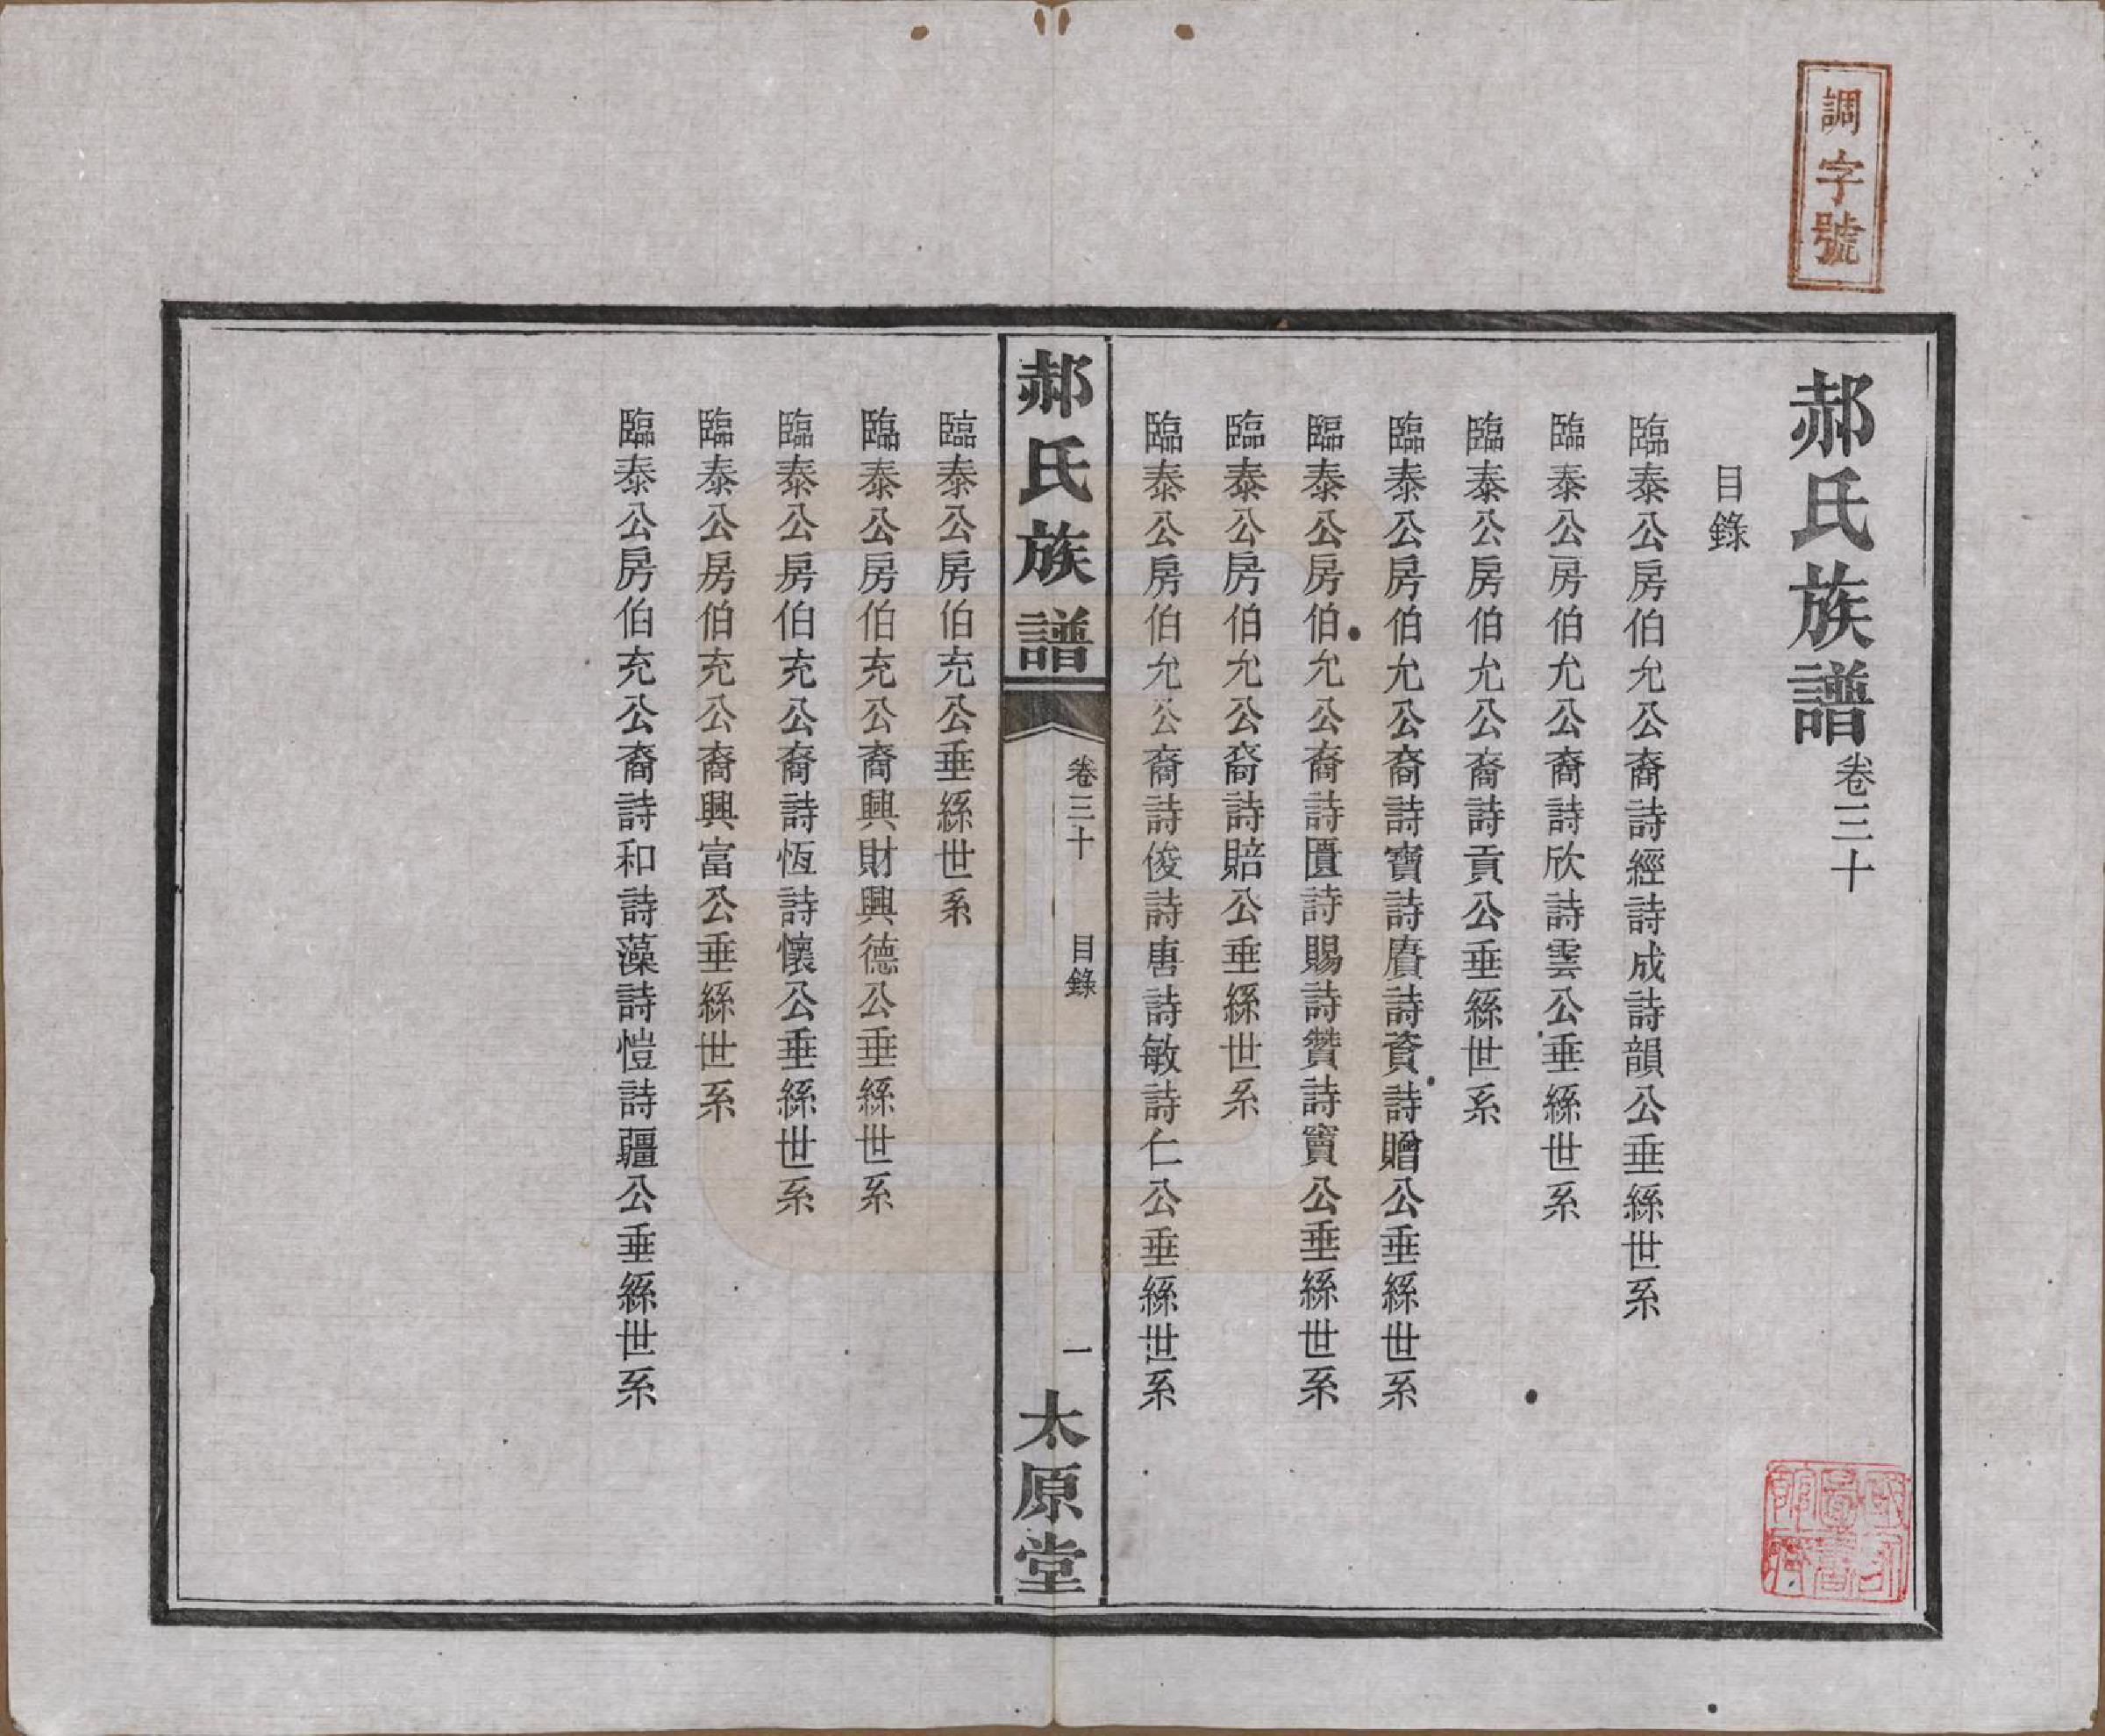 調字號
郝氏族譜卷三十
目錄
臨泰公房伯允公裔詩經詩成詩韻公垂絲世系
臨泰公房伯允公裔詩欣詩雲公垂絲世系
臨泰公房伯允公裔詩貢公垂絲世系
臨泰公房伯允公裔詩寶詩賡詩資詩贈公垂絲世系
臨泰公房伯允公裔詩匱詩賜詩贊詩賓公垂絲世系
臨泰公房伯允公裔詩賠公垂絲世系
臨泰公房伯允公裔詩俊詩唐詩敏詩仁公垂絲世系
郝氏族譜 卷三十 目錄 一 太原堂
臨泰公房伯充公垂絲世系
臨泰公房伯充公裔興財興德公垂絲世系
臨泰公房伯充公裔詩恆詩懷公垂絲世系
臨泰公房伯充公裔興富公垂絲世系
臨泰公房伯充公裔詩和詩藻詩愷詩疆公垂絲世系